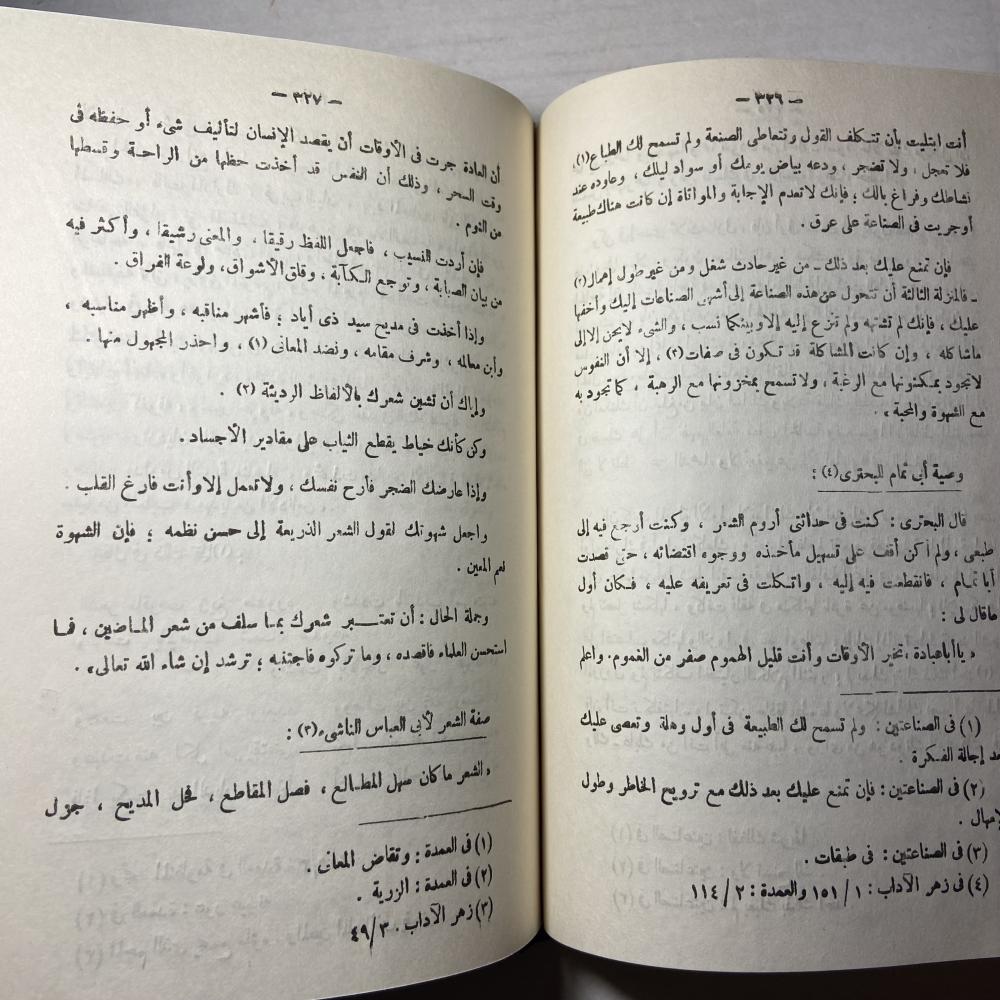 — ٣٢٦ —
أنت ابتليت بأن تتكلف القول وتتعاطى الصنعة ولم تسمح لك الطباع (١)
فلا تعجل ، ولا تضجر ، ودعه بياض يومك أو سواد ليلك ، وعاوده عند
نشاطك وفراغ بالك ؛ فإنك لا تعدم الإجابة والمواتاة إن كانت هناك طبيعة
أوجريت فى الصناعة على عرق .
فإن تمنع عليك بعد ذلك ـ من غير حادث شغل ومن غير طول إهمال (٢)
ـ فالمنزلة الثالثة أن تتحول عن هذه الصناعة إلى أشهى الصناعات إليك وأخفها
عليك ، فإنك لم تشتهه ولم تنزع إليه إلا وبينكما نسب ، والشىء لا يحن إلا إلى
ماشاكله ، وإن كانت المشاكلة قد تكون فى صفات (٣) ، إلا أن النفوس
لاتجود بمكنونها مع الرغبة ، ولا تسمح بمخزونها مع الرهبة ، كما تجود به
مع الشهوة والمحبة » .
وصية أبى تمام للبحترى (٤) :
قال البحترى : كنت فى حداثتى أروم الشعر ، وكنت أرجع فيه إلى
طبعى ، ولم أكن أقف على تسهيل مأخذه ووجوه اقتضائه ، حتى قصدت
أبا تمام ، فانقطعت فيه إليه ، واتكلت فى تعريفه عليه ، فكان أول
ماقال لى :
« يا أبا عبادة ، تخير الأوقات وأنت قليل الهموم صفر من الغموم . واعلم
(١) فى الصناعتين : ولم تسمح لك الطبيعة فى أول وهلة وتعصى عليك
بعد إجالة الفكرة .
(٢) فى الصناعتين : فإن تمنع عليك بعد ذلك مع ترويح الخاطر وطول
الإمهال .
(٣) فى الصناعتين : فى طبقات .
(٤) فى زهر الآداب : ١ / ١٥١ والعمدة : ٢ / ١١٤
— ٣٢٧ —
أن العادة جرت فى الأوقات أن يقصد الإنسان لتأليف شىء أو حفظه فى
وقت السحر ، وذلك أن النفس قد أخذت حظها من الراحة وقسطها
من النوم .
فإن أردت النسيب ، فاجعل اللفظ رقيقا ، والمعنى رشيقا ، وأكثر فيه
من بيان الصبابة ، وتوجع الكآبة ، وقلق الأشواق ، ولوعة الفراق .
وإذا أخذت فى مديح سيد ذى أياد ؛ فأشهر مناقبه ، وأظهر مناسبه ،
وأبن معالمه ، وشرف مقامه ، ونضد المعانى (١) ، واحذر المجهول منها .
وإياك أن تشين شعرك بالألفاظ الرديئة (٢) .
وكن كأنك خياط يقطع الثياب على مقادير الأجساد .
وإذا عارضك الضجر فأرح نفسك ، ولا تعمل إلا وأنت فارغ القلب .
واجعل شهوتك لقول الشعر الذريعة إلى حسن نظمه ؛ فإن الشهوة
نعم المعين .
وجملة الحال : أن تعتبر شعرك بما سلف من شعر الماضين ، فما
استحسن العلماء فاقصده ، وما تركوه فاجتنبه ؛ ترشد إن شاء الله تعالى » .
صفة الشعر لأبى العباس الناشىء (٣) :
« الشعر ما كان سهل المطالع ، فصل المقاطع ، فحل المديح ، جزل
(١) فى العمدة : وتقاض المعانى .
(٢) فى العمدة : الزرية .
(٣) زهر الآداب . ٣ / ٤٩